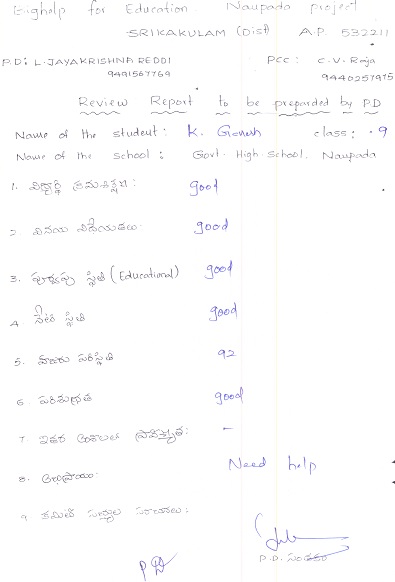 Bighelp for Education. Naupada project
SRIKAKULAM (Dist) A.P. 532211
P.D: L. JAYAKRISHNA REDDI PCC: C.V. Raja
9491567769 9440257975
Review Report to be preparded by PD
Name of the student: K. Ganesh class: 9
Name of the school: Govt. High School. Naupada
1. విద్యార్థి క్రమశిక్షణ: good
2. వినయ విధేయతలు: good
3. పూర్వపు స్థితి (Educational) good
4. నేటి స్థితి good
5. హాజరు పరిస్థితి 92
6. పరిశుభ్రత good
7. ఇతర అంశాలలో ప్రావీణ్యత: -
8. అభిప్రాయం: Need help
9. కమిటీ సభ్యుల సూచనలు:
PD P.D. సంతకం